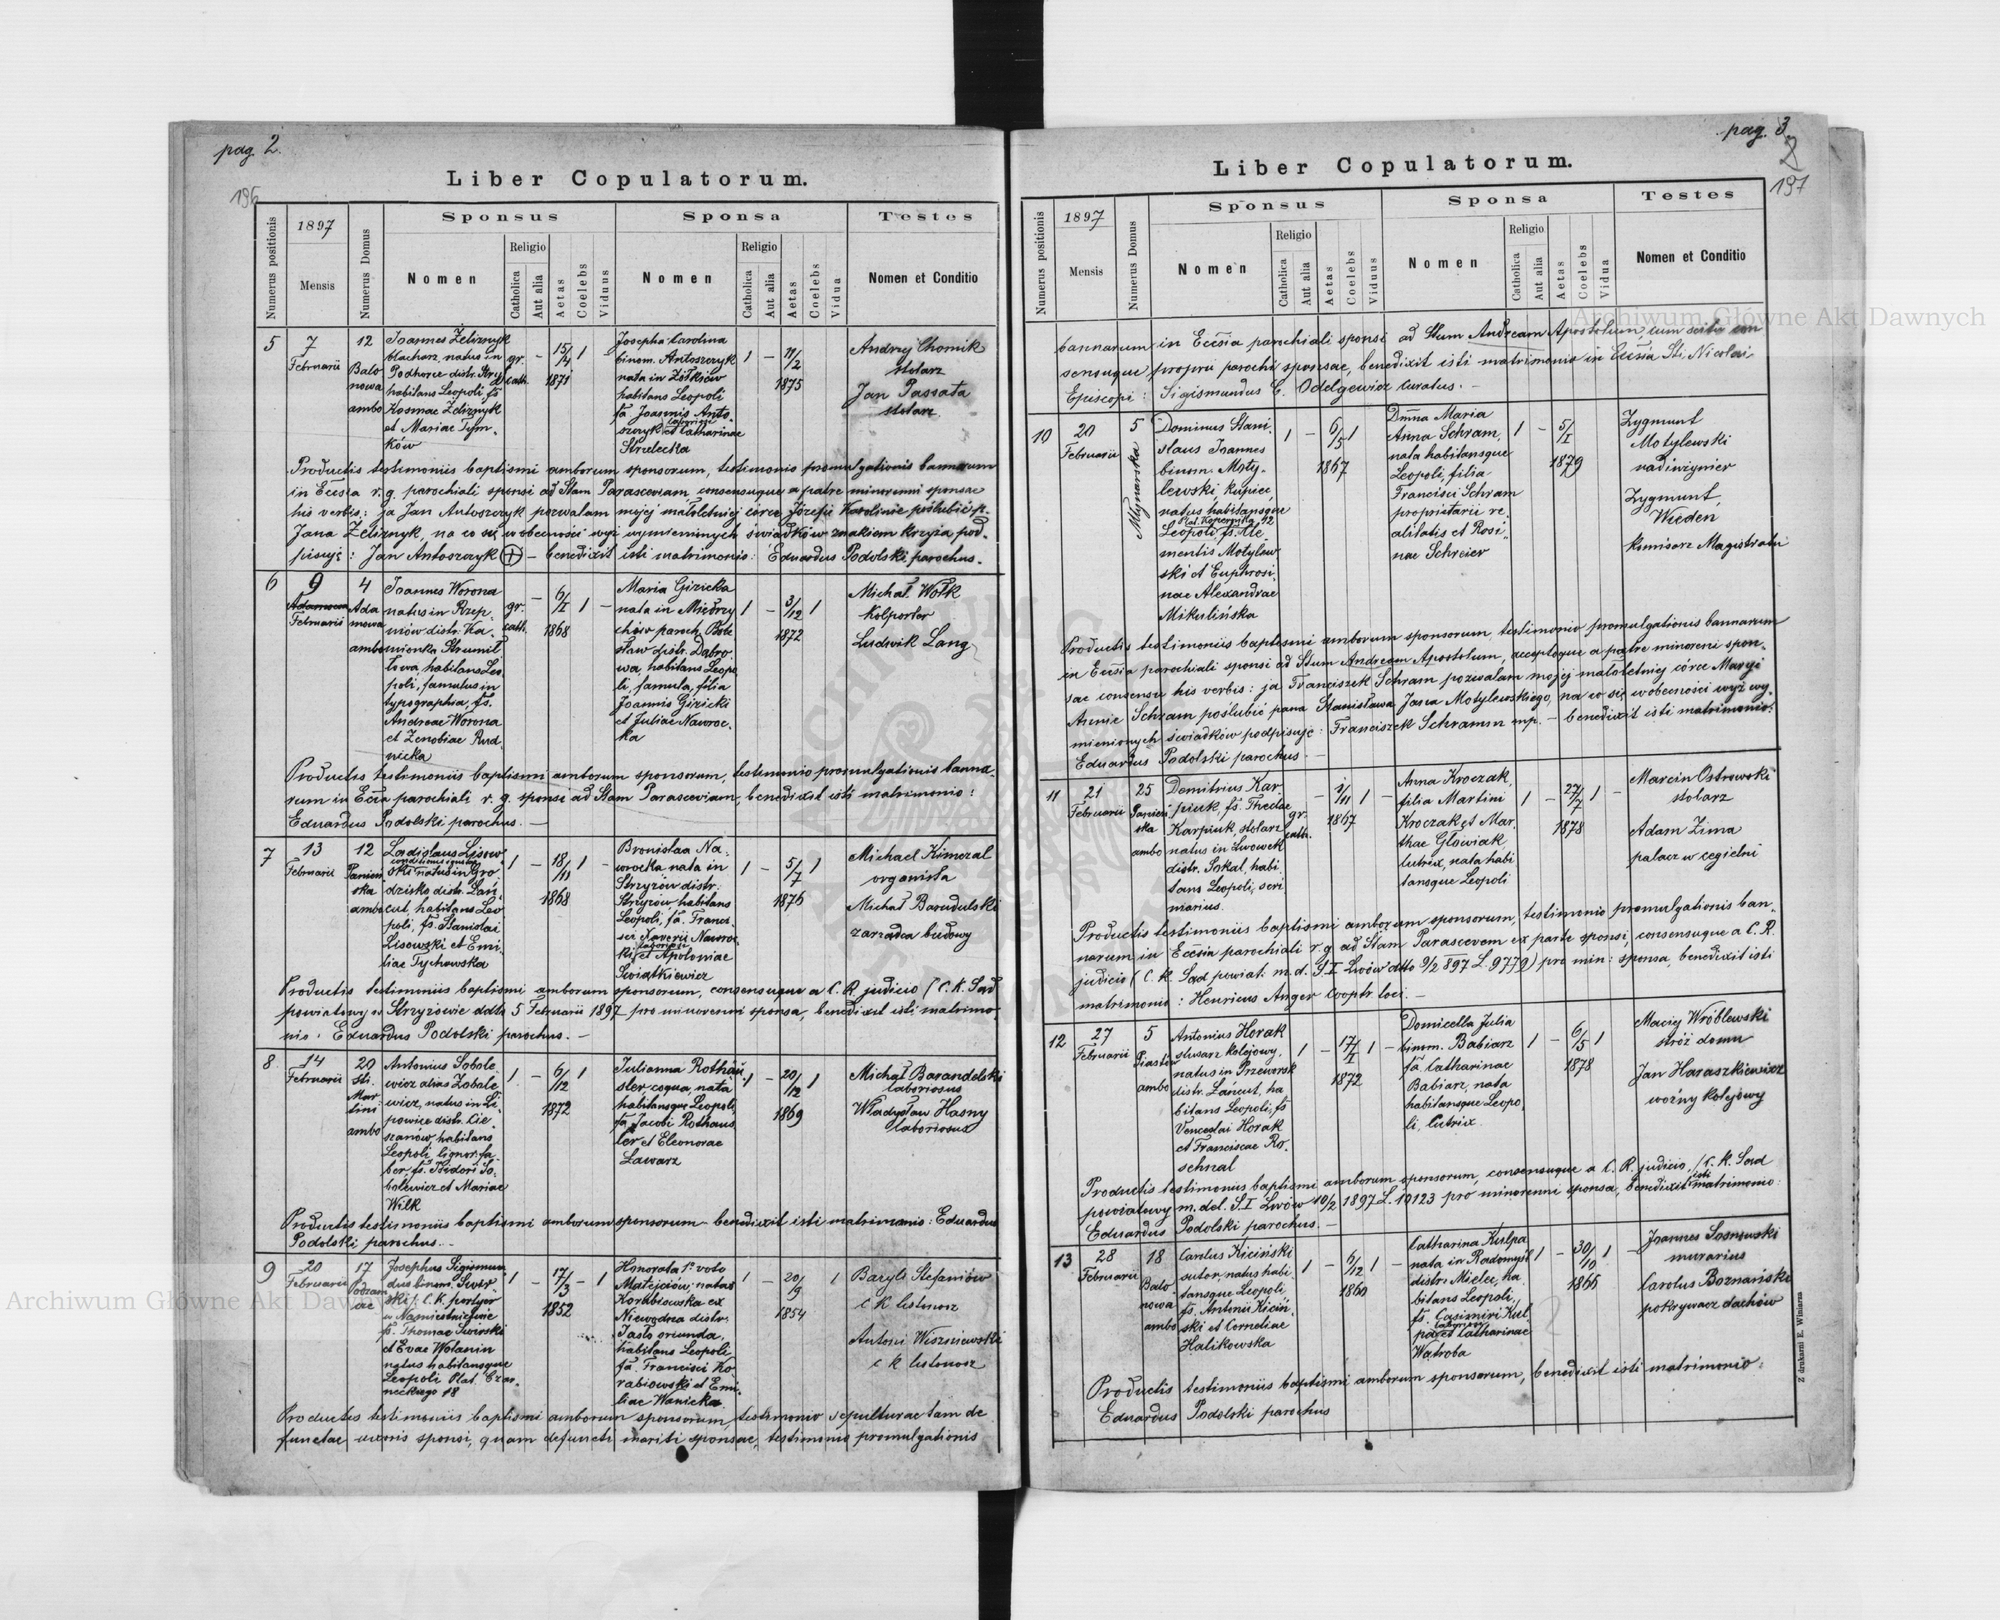 pag. 2.
196
Liber Copulatorum.
Numerus positionis
1897
Mensis
Numerus Domus
Sponsus
Nomen
Religio
Catholica
Aut alia
Aetas
Coelebs
Viduus
Sponsa
Nomen
Religio
Catholica
Aut alia
Aetas
Coelebs
Vidua
Testes
Nomen et Conditio
5
7
Februarii
12
Balo
nowa
ambo
Joannes Żeliznyk
blacharz, natus in
Podhorce distr. Stryj
habitans Leopoli, fs.
Kosmae Żeliznyk
et Mariae Tym-
ków
gr.
cath.
–
15/4
1871
1
–
Josepha Carolina
binom. Antoszczyk
nata in Żółkiew
habitans Leopoli
fa. Joannis Anto-
szczyk et Catharinae
Strelecka
1
–
11/2
1875
Andrzej Chomik
stolarz
Jan Passata
stolarz
Productis testimoniis baptismi amborum sponsorum, testimonio promulgationis bannorum
in Eccsia r. g. parochiali sponsi ad Stam Parasceviam consensuque a patre minorenni sponsae
his verbis: ja Jan Antoszczyk pozwalam mojej małoletniej córce Józefie Karolinie poślubić p.
Jana Żeliznyk, na co się w obecności wyż wymienionych świadków znakiem krzyża pod-
pisuję: Jan Antoszczyk + – benedixit isti matrimonio: Eduardus Podolski parochus. –
6
9
Februarii
4
Ada
mowa
ambo
Joannes Worona
natus in Rzep-
niów distr. Ka-
mionka Strumił
łowa, habitans Leo-
poli, famulus in
typographia, fs.
Andreae Worona
et Zenobiae Rud-
nicka
gr.
cath.
–
6/I
1868
1
–
Maria Gizicka
nata in Miedrzy
chów paroch. Bole
sław distr. Dąbro-
wa, habitans Leopo-
li, famula, filia
Joannis Gizicki
et Juliae Nawroc-
ka
1
–
3/12
1872
1
Michał Wołk
kolporter
Ludwik Lang
Productis testimoniis baptismi amborum sponsorum, testimonio promulgationis banno-
rum in Eccia parochiali r. g. sponsi ad Stam Parasceviam, benedixit isti matrimonio:
Eduardus Podolski parochus. –
7
13
Februarii
12
Panień
ska
ambo
Ladislaus Lisow-
ski natus in Gro-
dzisko distr. Łań-
cut, habitans Leo-
poli, fs. Stanislai
Lisowski et Emi-
liae Tychowska
1
–
18/11
1868
1
–
Bronislaa Na-
wrocka nata in
Strzyżów distr.
Strzyżów habitans
Leopoli, fa. Franci-
sci Xaverii Nawroc-
ki et Apoloniae
Świątkiewicz
1
–
5/7
1876
1
Michael Kimczal
organista
Michał Barudulski
zarządca budowy
Productis testimoniis baptismi amborum sponsorum, consensuque a C. R. judicio / C. K. Sąd
powiatowy w Strzyżowie ddto 5 Februarii 1897 pro minorenni sponsa, benedixit isti matrimo-
nio: Eduardus Podolski parochus. –
8
14
Februarii
20
Sti.
Mar-
tini
ambo
Antonius Sobole
wicz alias Zobale
wicz, natus in Li-
powice distr. Cie-
szanów, habitans
Leopoli, lignor. fa-
ber, fs. Isidori So-
bolewicz et Mariae
Wilk
1
–
6/12
1872
1
Julianna Rothau
sler coqua, nata
habitansque Leopoli,
fa. Jacobi Rothaus
ler et Eleonorae
Lawarz
1
–
20/12
1869
1
Michał Barandelski
laboriosus
Władysław Hasny
laboriosus
Productis testimoniis baptismi amborum sponsorum – benedixit isti matrimonio: Eduardus
Podolski parochus. –
9
20
Februarii
17
Podzam
cze
Josephus Sigismun
dus binom. Świr-
ski, C. K. portyer
w Namiestnictwie
fs. Thomae Świrski
et Evae Wolanin
natus habitansque
Leopoli Plat. Czar-
neckiego 18
1
–
17/3
1852
–
1
Honorata 1º voto
Matejców, nata
Korabiowska ex
Niewodna distr.
Jasło oriunda,
habitans Leopoli
fa. Francisci Ko-
rabiowski et Emi-
liae Wanicka
1
–
20/9
1854
1
Baryli Stefaniów
c k listonosz
Antoni Wiszniewski
c k listonosz
Productis testimoniis baptismi amborum sponsorum, testimonio sepulturae tam de
functae uxoris sponsi, quam defuncti mariti sponsae, testimonio promulgationis
pag. 3
2
197
Liber Copulatorum.
Numerus positionis
1897
Mensis
Numerus Domus
Sponsus
Nomen
Religio
Catholica
Aut alia
Aetas
Coelebs
Viduus
Sponsa
Nomen
Religio
Catholica
Aut alia
Aetas
Coelebs
Vidua
Testes
Nomen et Conditio
bannorum in Eccsia parochiali sponsi ad Stum Andream Apostolum cum scitu con
sensuque proprii parochi sponsae, benedixit isti matrimonio in Eccsia Sti. Nicolai
Episcopi: Sigismundus C. Odelgewicz curatus. –
10
20
Februarii
5
Młynarska
Dominus Stani-
slaus Joannes
binom. Moty-
lewski kupiec,
natus habitansque
Plat. Kopernika 42
Leopoli, fs. Cle-
mentis Motylew-
ski et Euphrosi-
nae Alexandrae
Mikulińska
1
–
6/5
1867
1
Dmna Maria
Anna Schram,
nata habitansque
Leopoli, filia
Francisci Schram
proprietarii re-
alitatis et Rosi-
nae Schreier
1
–
5/I
1879
Zygmunt
Motylewski
nadinżynier
Zygmunt
Wieden
komisarz Magistratu
Productis testimoniis baptismi amborum sponsorum, testimonio promulgationis bannorum
in Eccsia parochiali sponsi ad Stum Andream Apostolum, acceptoque a patre minorenni spon-
sae consensu his verbis: ja Franciszek Schram pozwalam mojej małoletniej córce Maryi
Annie Schram poślubić pana Stanisława Jana Motylewskiego, na co się w obecności wyż wy-
mienionych świadków podpisuję: Franciszek Schramm mp. – benedixit isti matrimonio:
Eduardus Podolski parochus. –
11
21
Februarii
25
Panień
ska
ambo
Demitrius Kar-
piuk, fs. Thedae
Karpiuk, stolarz
natus in Lwowek
distr. Sokal, habi
tans Leopoli, scri
niarius
gr.
cath.
–
1/11
1867
1
–
Anna Kroczak,
filia Martini
Kroczak et Mar-
thae Głowiak,
lutrix, nata habi
tansque Leopoli
1
–
27/7
1878
1
–
Marcin Ostrowski
stolarz
Adam Zima
palacz w cegielni
Productis testimoniis baptismi amborum sponsorum, testimonio promulgationis ban-
norum in Eccsia parochiali r. g ad Stam Parascevem ex parte sponsi, consensuque a C. R.
judicio (C. K. Sąd powiat. m. d. S. I Lwów ddto 9/2 897 L. 9779) pro min: sponsa, benedixit isti
matrimonio: Henricus Anger Cooptr. loci. –
12
27
Februarii
5
Piastów
ambo
Antonius Horak
ślusarz kolejowy,
natus in Przeworsk
distr. Łańcut, ha
bitans Leopoli, fs
Venceslai Horak
et Franciscae Ro-
schnal
1
–
17/I
1872
1
–
Domicella Julia
binom. Babiarz
fa. Catharinae
Babiarz, nata
habitansque Leopo-
li, lutrix
1
–
6/5
1878
1
Maciej Wróblewski
stróż domu
Jan Haraszkiewicz
woźny kolejowy
Productis testimoniis baptismi amborum sponsorum, consensuque a C. R. judicio / C. K. Sąd
powiatowy m. del. S. I Lwów 10/2 1897 L. 10123 pro minorenni sponsa, benedixit isti matrimonio:
Eduardus Podolski parochus. –
13
28
Februarii
18
Balo
nowa
ambo
Carolus Kiciński
sutor, natus habi
tansque Leopoli,
fs. Antonii Kiciń-
ski et Corneliae
Halikowska
1
–
6/12
1860
1
–
Catharina Kulpa
nata in Radomyśl
distr. Mielec, ha
bitans Leopoli,
fs. Casimiri Kul-
pa et Catharinae
Wątroba
1
–
30/10
1866
1
–
Joannes Sosnowski
murarius
Carolus Boznański
pokrywacz dachów
Productis testimoniis baptismi amborum sponsorum, benedixit isti matrimonio:
Eduardus Podolski parochus
Z drukarni E. Winiarza
Archiwum Główne Akt Dawnych
Archiwum Główne Akt Dawnych